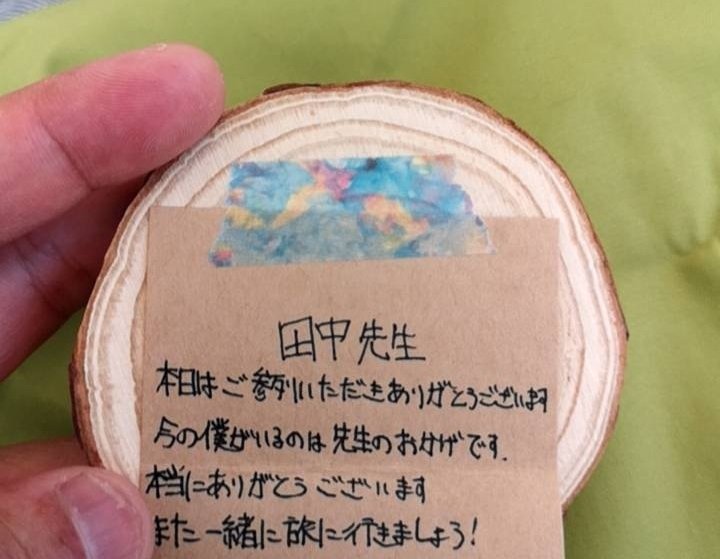 田中先生
本日はご参列いただきありがとうございます
今の僕がいるのは先生のおかげです.
本当にありがとうございます
また一緒に旅に行きましょう!